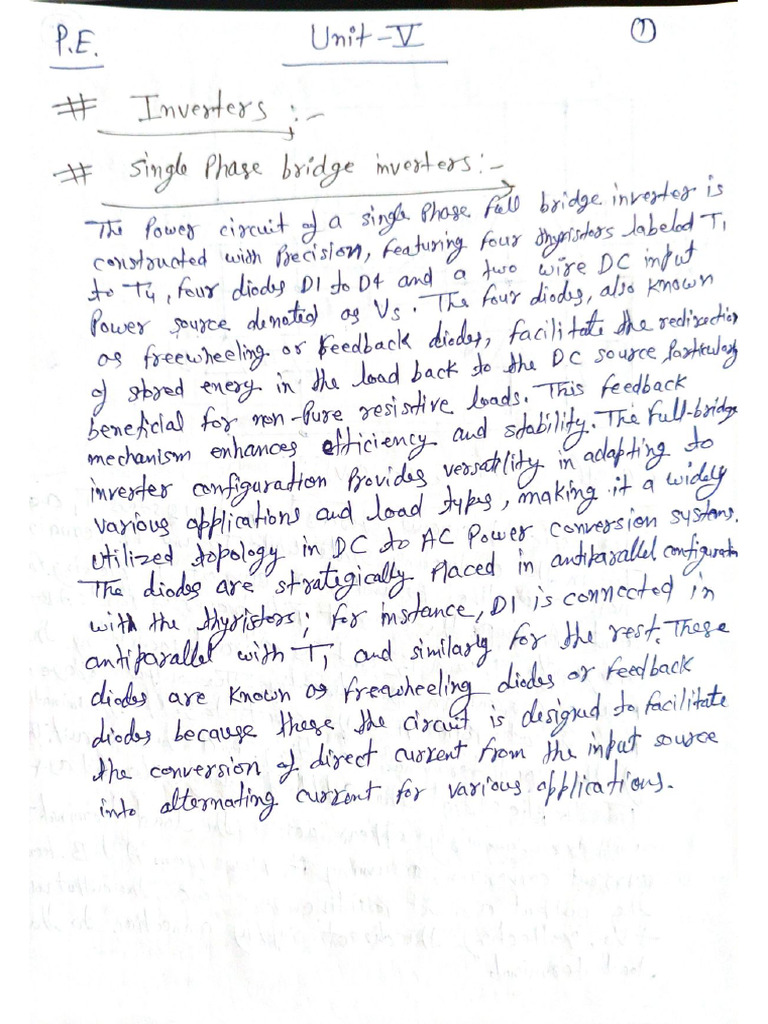 P.E. Unit-V 1
# Inverters :-
# Single Phase bridge inverters:-
The Power circuit of a single Phase full bridge inverter is
constructed with Precision, featuring four thyristors labeled T1
to T4, four diodes D1 to D4 and a two wire DC input
Power source denoted as Vs. The four diodes, also known
as freewheeling or feedback diodes, facilitate the redirection
of stored energy in the load back to the DC source Particularly
beneficial for non-Pure resistive loads. This feedback
mechanism enhances efficiency and stability. The Full-bridge
inverter configuration Provides versatility in adapting to
various applications and load types, making it a widely
utilized topology in DC to AC Power conversion systems.
The diodes are strategically Placed in antiparallel configuration
with the thyristors, for instance, D1 is connected in
antiparallel with T1 and similarly for the rest. These
diodes are known as freewheeling diodes or feedback
diodes because these the circuit is designed to facilitate
the conversion of direct current from the input source
into alternating current for various applications.